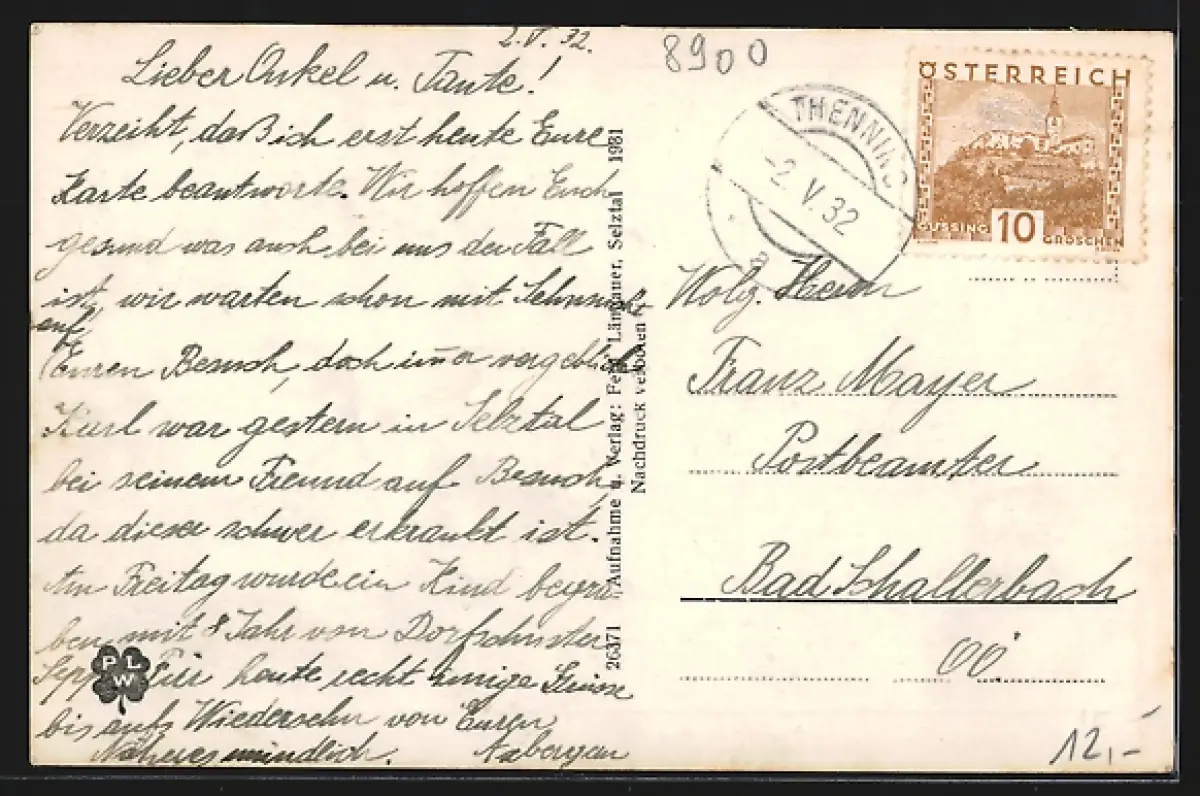 2.V.32.
Lieber Onkel u. Tante!
Verzeiht, daß ich erst heute Eure
Karte beantworte. Wir hoffen Euch
gesund was auch bei uns der Fall
ist, wir warten schon mit Sehnsucht
auf
Euren Besuch, doch im̅er vergeblich
Karl war gestern in Selztal
bei seinem Freund auf Besuch,
da dieser schwer erkrankt ist.
Am Freitag wurde ein Kind begra-
ben, mit 8 Jahr von Dorfschuster
Sepp. Für heute recht innige Grüsse
bis aufs Wiedersehn von Euren
Näheres mündlich.
PLW
26371 Aufnahme u. Verlag: Ferd. Längauer, Selztal 1931
Nachdruck verboten
8900
THENNING
-2.V.32
a
ÖSTERREICH
GÜSSING 10 GROSCHEN
Wolg. Herrn
Franz Mayer
Postbeamter
Bad Schallerbach
OÖ
12,-